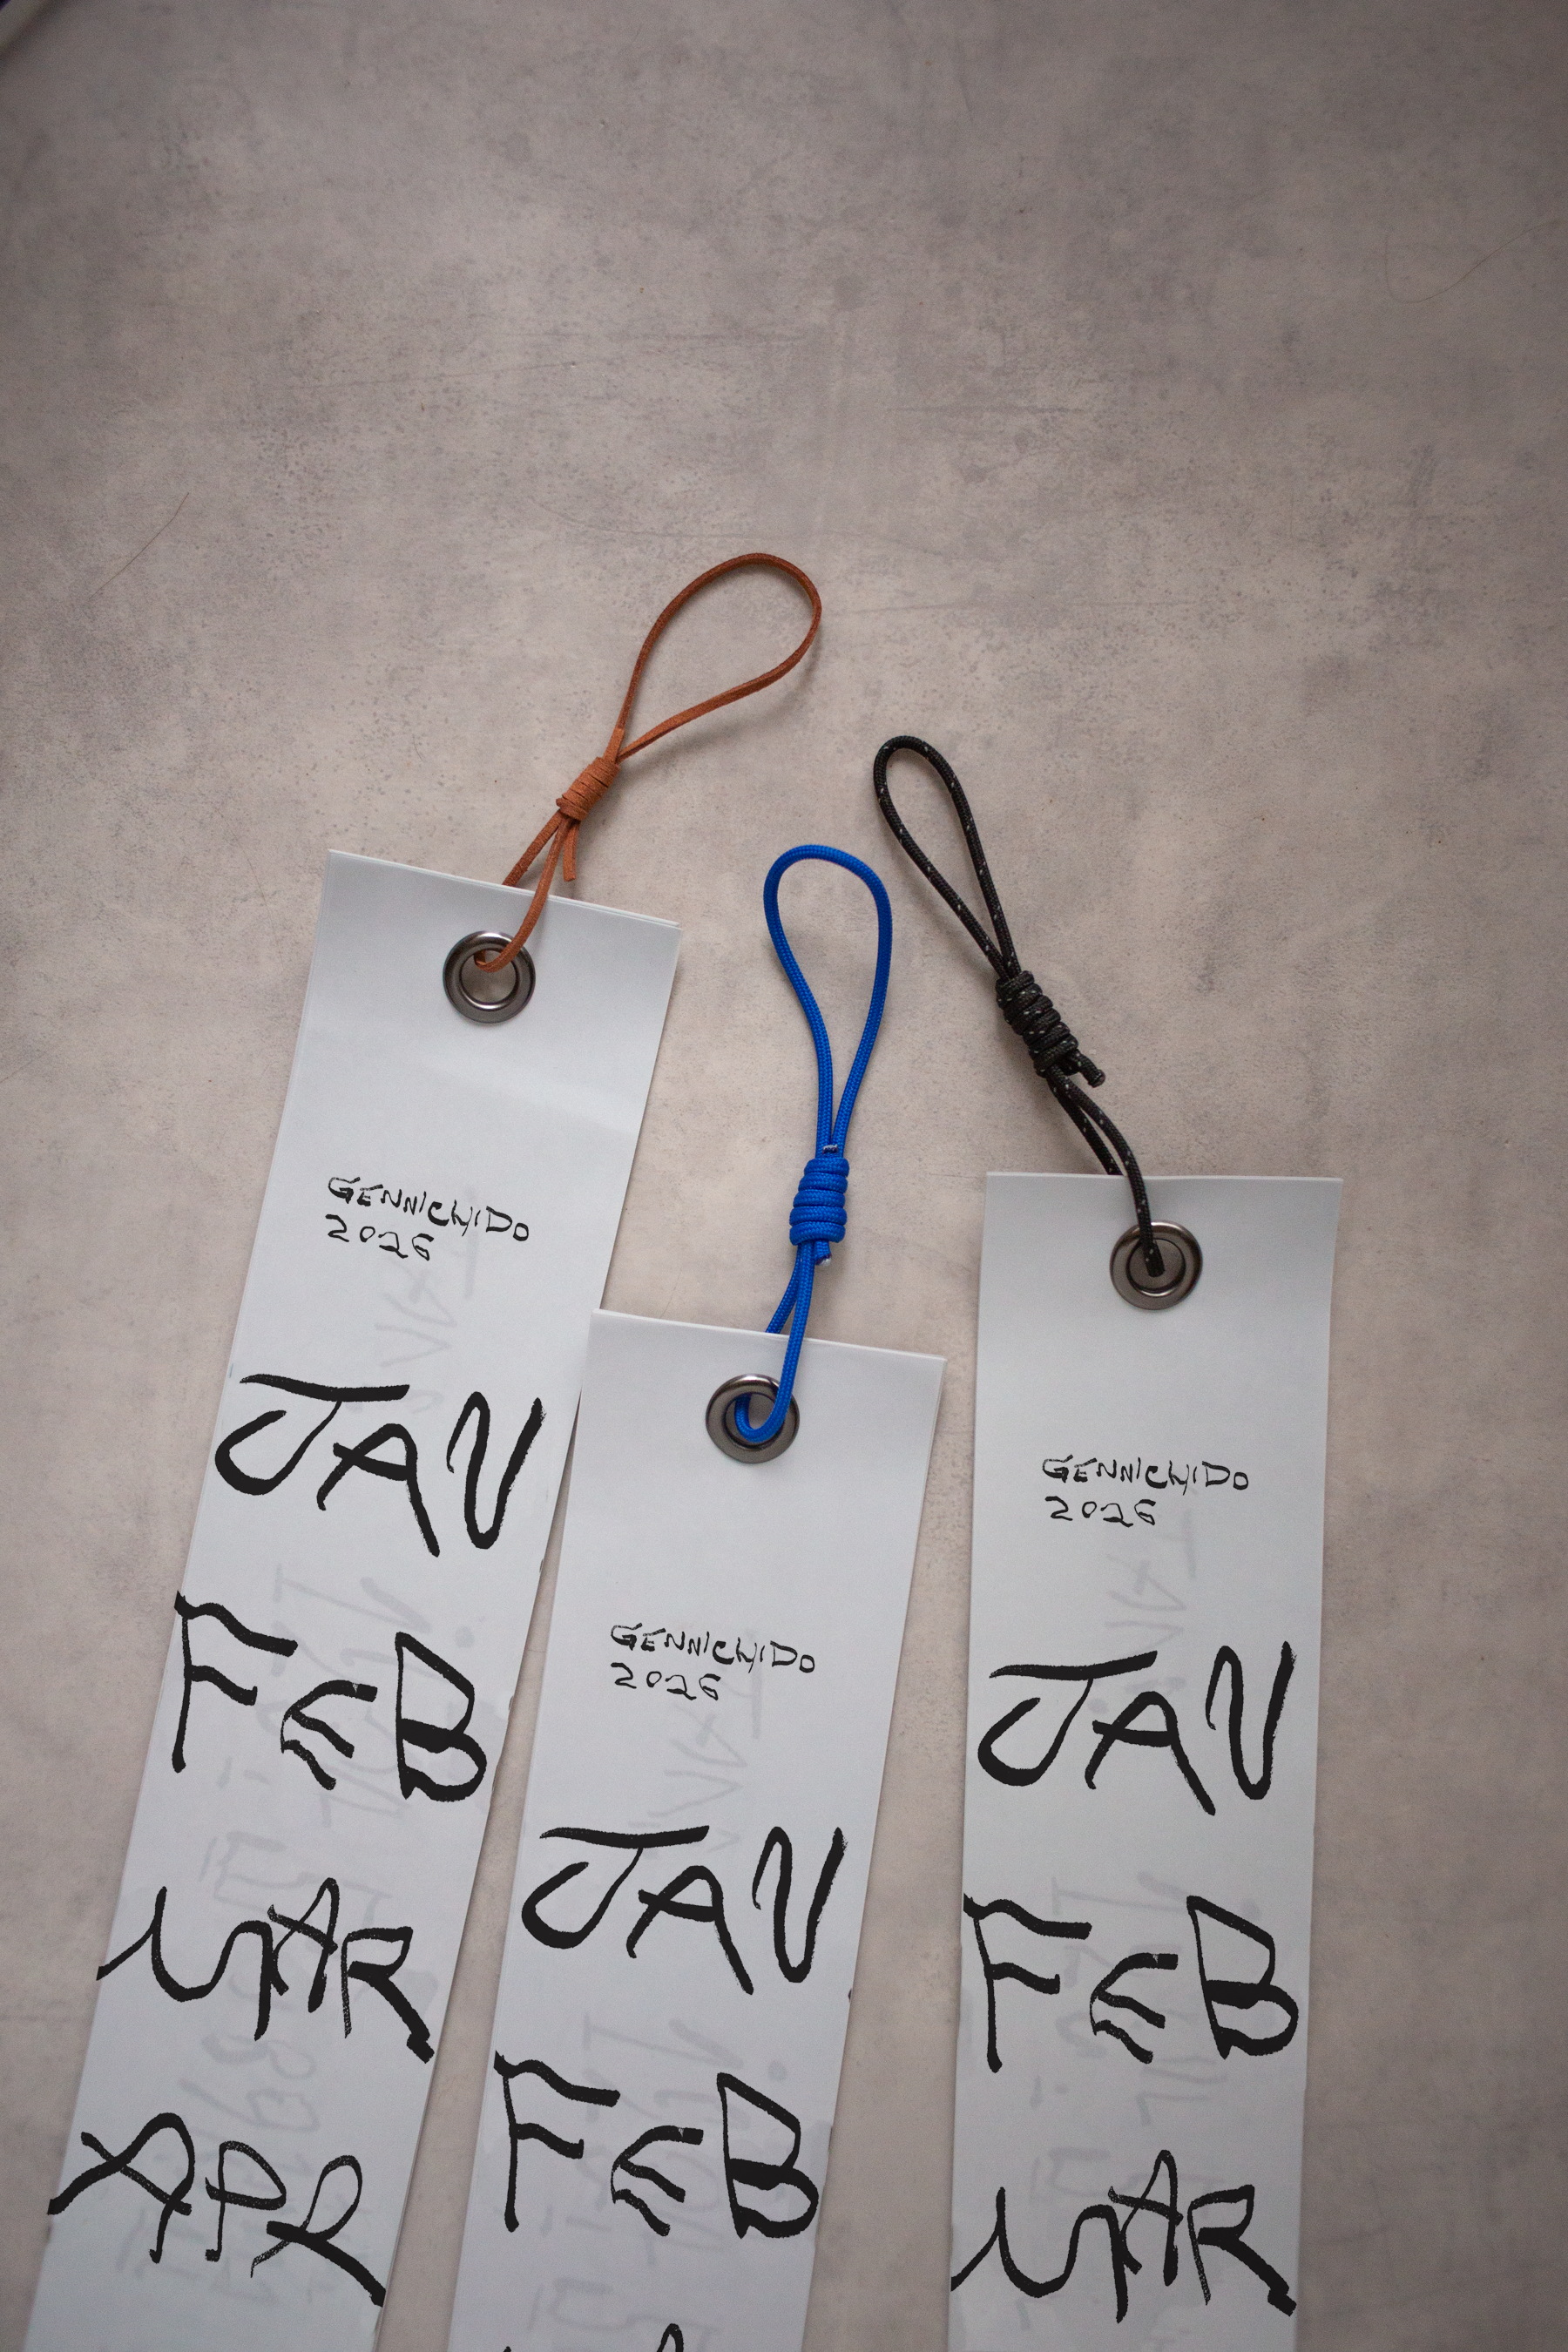 GENNICHIDO
2026
JAN
FEB
MAR
APR
GENNICHIDO
2026
JAN
FEB
GENNICHIDO
2026
JAN
FEB
MAR